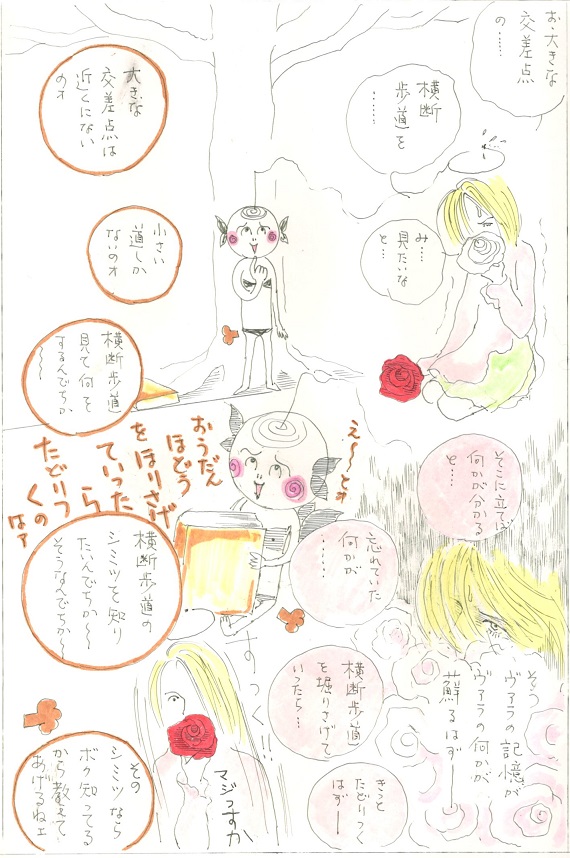 お・大きな
交差点
の……
横断
歩道を
……
み…
見たいな
と…
大きな
交差点は
近くにない
のォ
小さい
道しか
ないのォ
横断歩道
見て何を
するんでちか
〜〜
そこに立てば
何かが分かる
と…
え〜とォ
おうだん
ほどう
をほりさげ
ていった
ら
たどりつ
くのは?
忘れていた
何かが
……
横断歩道の
シミツを知り
たいんでちか〜
そうなんでちか〜
そう
ヴァラの記憶が
ヴァラの何かが
蘇るはずー
横断歩道
を堀りさげて
いったら…
きっと
たどりつく
はずー
すっく!!
マジっすか
その
シミツなら
ボク知ってる
から教えて
あげるねェ